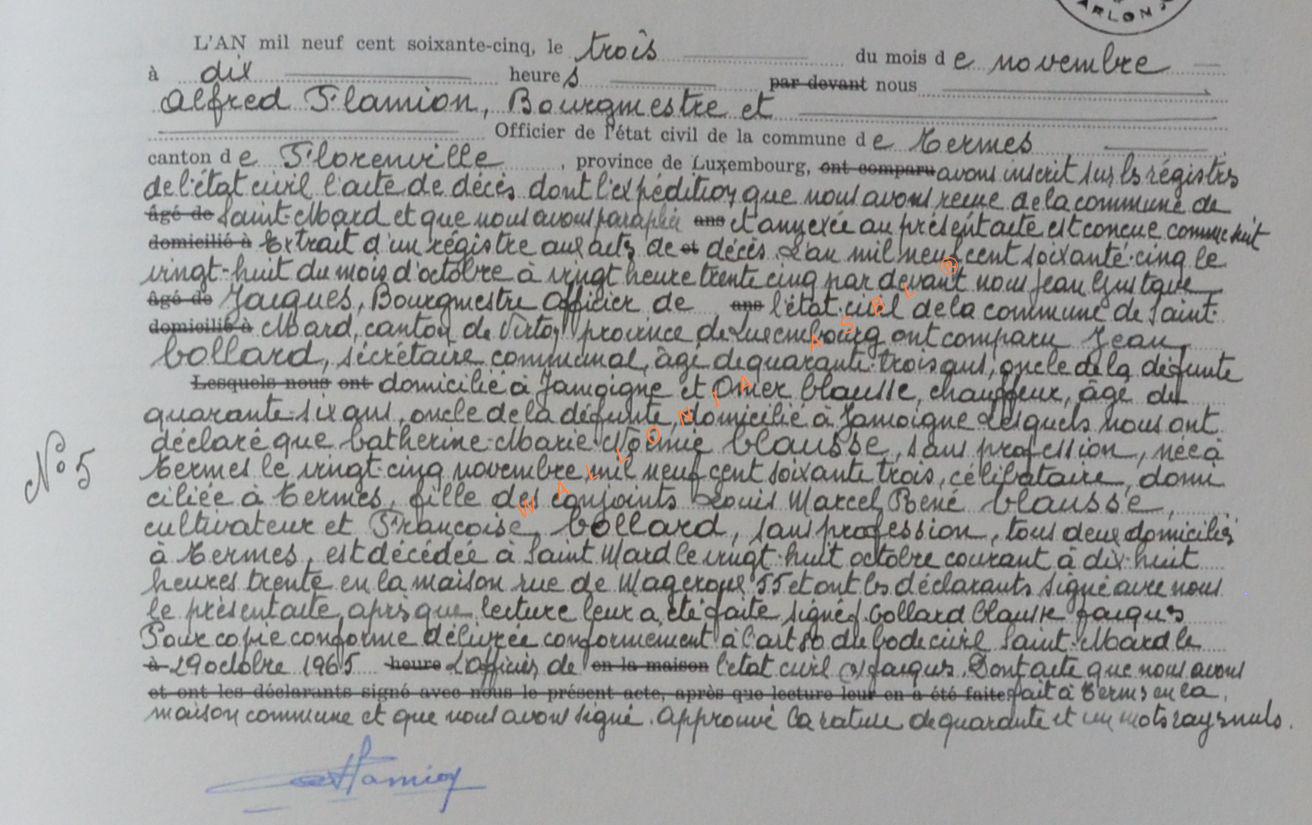 ARLON
L'AN mil neuf cent soixante-cinq, le trois du mois de novembre
à dix heures par devant nous
Alfred Flamion, Bourgmestre et
Officier de l'état civil de la commune de Termes
canton de Florenville, province de Luxembourg, ont comparu avons inscrit sur les régistres
de l'état civil l'acte de décès dont l'expédition que nous avons reçue de la commune de
âgé de Saint-Mard et que nous avons paraphée ans et annexée au présent acte est conçue comme suit
domicilié à Extrait d'un régistre aux actes de et décès. L'an mil neuf cent soixante-cinq le
vingt-huit du mois d'octobre à vingt heure trente cinq par devant nous Jean Gustave
âgé de Jacques, Bourgmestre Officier de ans l'état-civil de la commune de Saint-
domicilié à Mard, canton de Virton province de Luxembourg ont comparu Jean
Collard, sécrétaire communal, âgé de quarante-trois ans, oncle de la défunte
Lesquels nous ont domicilié à Jamoigne et Omer Clausse, chauffeur, âge de
quarante-six ans, oncle de la défunte, domicilié à Jamoigne Lesquels nous ont
déclaré que Catherine-Marie-Noëmie Clausse, sans profession, née à
Termes le vingt-cinq novembre mil neuf cent soixante trois, célibataire, domi
N° 5
ciliée à Termes, fille des conjoints Louis Marcel René Clausse,
cultivateur et Françoise, Collard, sans profession, tous deux domiciliés
à Termes, est décédée à Saint Mard le vingt-huit octobre courant à dix-huit
heures trente en la maison rue de 55 et ont les déclarants signé avec nous
le présent acte, après que lecture leur a été faite signés Collard Clausse Jacques
Pour copie conforme délivrée conformement à l'art 80 du Code civil Saint-Mard le
à 29 octobre 1965 heure L'officier de en la maison l'état civil (s) Jacques. Dont acte que nous avons
et ont les déclarants signé avec nous le présent acte, après que lecture leur en a été faite fait à Termes en la
maison commune et que nous avons signé. Approuvé la rature de quarante et un mots rayés nuls.
WALLONIA ASBL ®
Flamion